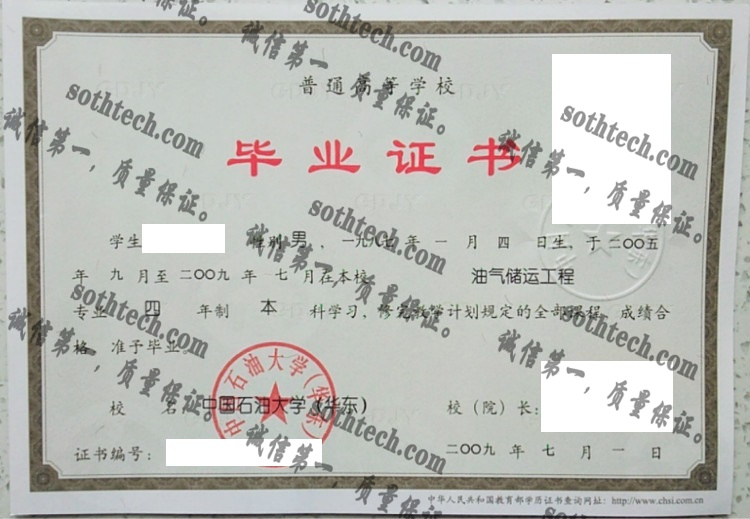 普通高等学校
毕业证书
学生 性别 男 ，一九八七 年 一 月 四 日生，于 二〇〇五
年 九 月至 二〇〇九 年 七 月在本校 油气储运工程
专业 四 年制 本 科学习，修完教学计划规定的全部课程，成绩合
格，准予毕业。
校 名 中国石油大学（华东） 校（院）长：
证书编号： 二〇〇九 年 七 月 一 日
中国石油大学（华东）
中华人民共和国教育部学历证书查询网址：http://www.chsi.com.cn
sothtech.com
诚信第一，质量保证。
sothtech.com
诚信第一，质量保证。
sothtech.com
诚信第一，质量保证。
sothtech.com
诚信第一，质量保证。
sothtech.com
诚信第一，质量保证。
sothtech.com
诚信第一，质量保证。
sothtech.com
诚信第一，质量保证。